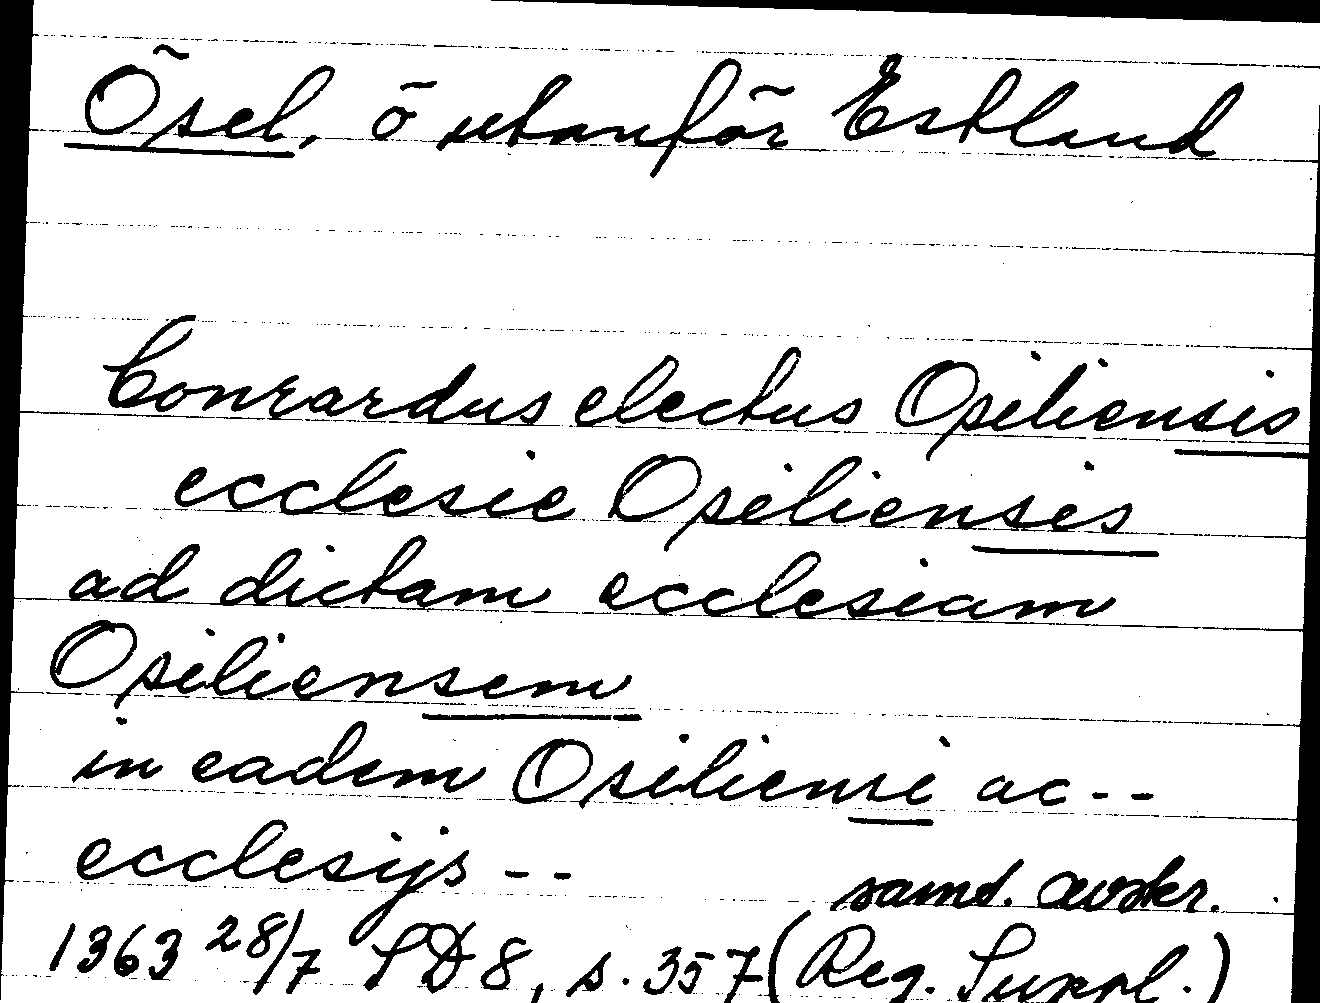 Ösel, ö utanför Estland
Conrardus electus Osiliensis
ecclesie Osiliensis
ad dictam ecclesiam
Osiliensem
in eadem Osiliensi ac--
ecclesijs --
samt. avskr.
1363 28/7 SD 8, s. 357 (Reg. Suppl.)